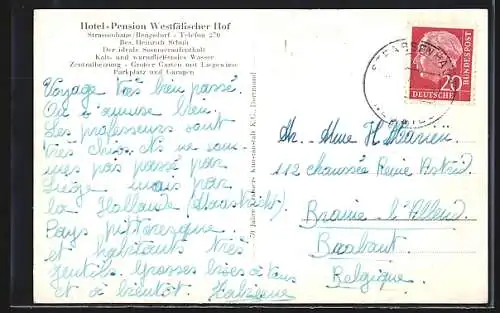 Hotel-Pension Westfälischer Hof
Strassenhaus/Rengsdorf - Telefon 270
Bes. Heinrich Schuh
Der ideale Sommeraufenthalt
Kalt- und warmfließendes Wasser
Zentralheizung - Großer Garten mit Liegewiese
Parkplatz und Garagen
Voyage très bien passé.
On s'amuse bien.
Les professeurs sont
très chics. Nous ne som-
mes pas passé par
Liège mais par
la Hollande (Maastricht)
Pays pittoresque
et habitants très
gentils. Grosses bises à tous
et à bientôt.
70 Jahre Kunstanstalt K.G., Dortmund
STRASSENHAUS
20
DEUTSCHE
BUNDESPOST
Mr. Mme H
112 chaussée Reine Astrid
Braine l'Alleud
Brabant
Belgique